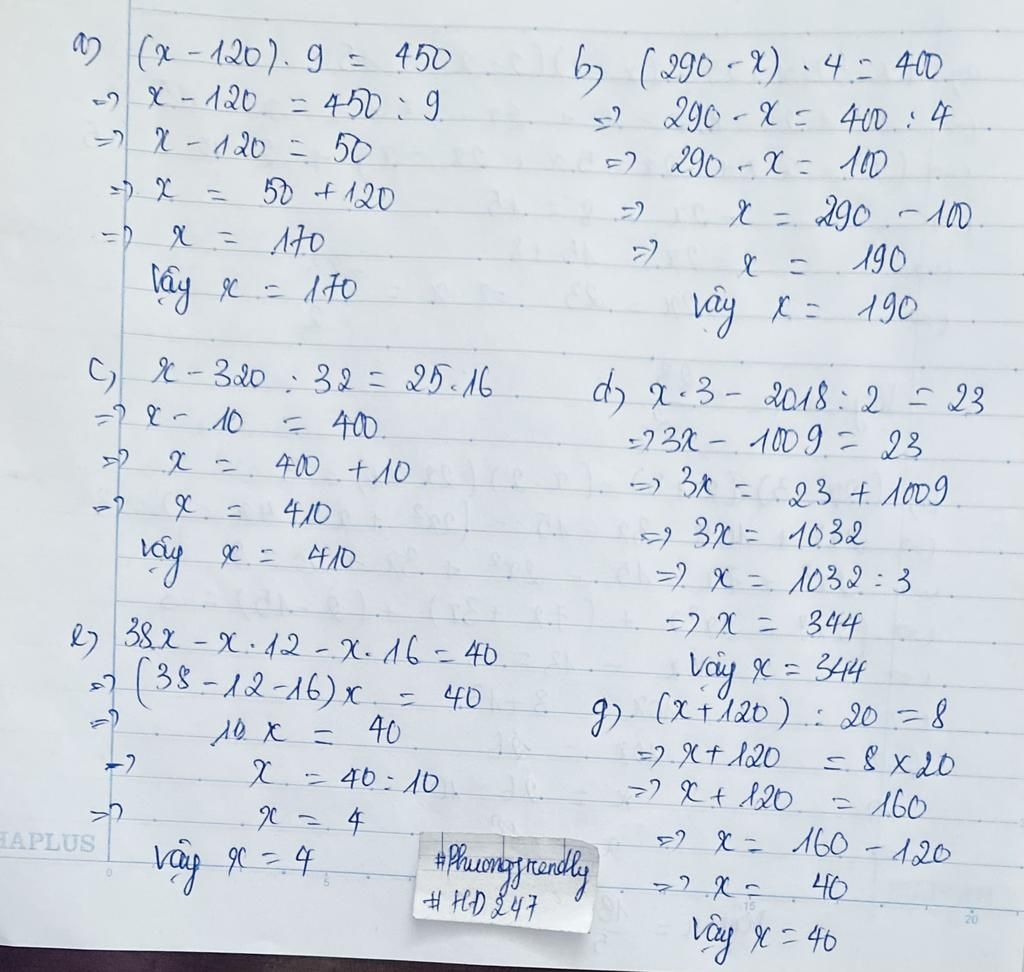 a) (x - 120) . 9 = 450
=> x - 120 = 450 : 9
=> x - 120 = 50
=> x = 50 + 120
=> x = 170
Vậy x = 170
b) (290 - x) . 4 = 400
=> 290 - x = 400 : 4
=> 290 - x = 100
=> x = 290 - 100
=> x = 190
Vậy x = 190
c) x - 320 : 32 = 25.16
=> x - 10 = 400
=> x = 400 + 10
=> x = 410
Vậy x = 410
d) x . 3 - 2018 : 2 = 23
=> 3x - 1009 = 23
=> 3x = 23 + 1009
=> 3x = 1032
=> x = 1032 : 3
=> x = 344
Vậy x = 344
e) 38x - x . 12 - x . 16 = 40
=> (38 - 12 - 16)x = 40
=> 10 x = 40
=> x = 40 : 10
=> x = 4
Vậy x = 4
g) (x + 120) : 20 = 8
=> x + 120 = 8 x 20
=> x + 120 = 160
=> x = 160 - 120
=> x = 40
Vậy x = 40
#Phuongfriendly
#HD247
HAPLUS
0
5
15
20